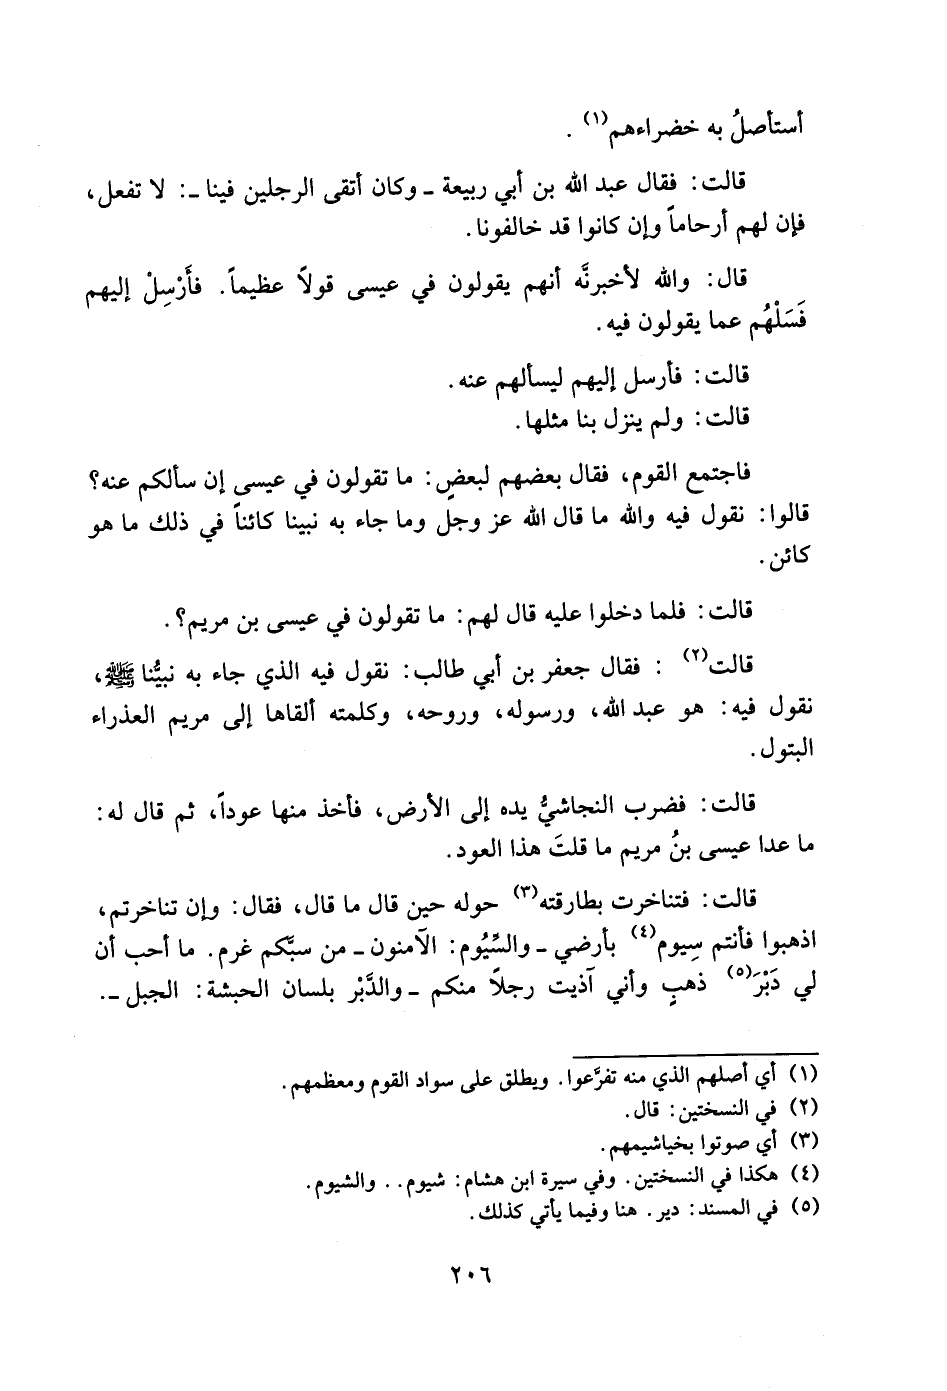 أستأصلُ به خضراءهم(١) .
قالت: فقال عبد الله بن أبي ربيعة ـ وكان أتقى الرجلين فينا ـ: لا تفعل،
فإن لهم أرحاماً وإن كانوا قد خالفونا.
قال: والله لأخبرنَّه أنهم يقولون في عيسى قولاً عظيماً. فأَرْسِلْ إليهم
فَسَلْهُم عما يقولون فيه.
قالت: فأرسل إليهم ليسألهم عنه.
قالت: ولم ينزل بنا مثلها.
فاجتمع القوم، فقال بعضهم لبعضٍ: ما تقولون في عيسى إن سألكم عنه؟
قالوا: نقول فيه والله ما قال الله عز وجل وما جاء به نبينا كائناً في ذلك ما هو
كائن.
قالت: فلما دخلوا عليه قال لهم: ما تقولون في عيسى بن مريم؟.
قالت(٢) : فقال جعفر بن أبي طالب: نقول فيه الذي جاء به نبيُّنا ﷺ،
نقول فيه: هو عبد الله، ورسوله، وروحه، وكلمته ألقاها إلى مريم العذراء
البتول.
قالت: فضرب النجاشيُّ يده إلى الأرض، فأخذ منها عوداً، ثم قال له:
ما عدا عيسى بنُ مريم ما قلتَ هذا العود.
قالت: فتناخرت بطارقته(٣) حوله حين قال ما قال، فقال: وإن تناخرتم،
اذهبوا فأنتم سِيوم(٤) بأرضي ـ والسُِّيُوم: الآمنون ـ من سبَّكم غرم. ما أحب أن
لي دَبْرَ(٥) ذهبٍ وأني آذيت رجلاً منكم ـ والدَّبْر بلسان الحبشة: الجبل ـ.
(١) أي أصلهم الذي منه تفرَّعوا. ويطلق على سواد القوم ومعظمهم.
(٢) في النسختين: قال.
(٣) أي صوتوا بخياشيمهم.
(٤) هكذا في النسختين. وفي سيرة ابن هشام: شيوم.. والشيوم.
(٥) في المسند: دير. هنا وفيما يأتي كذلك.
٢٠٦